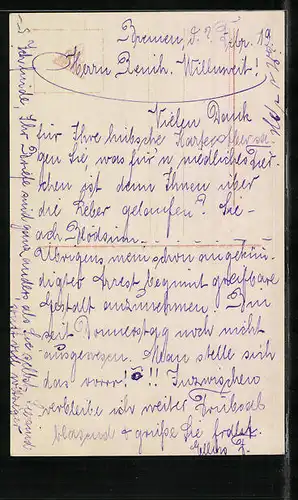 Bremen, d. 2 Febr. 19
Herrn Bernh. Willenweit!
Vielen Dank
für Ihre hübsche Karte
gen Sie, was für'n niedliches Tier
chen ist denn Ihnen über
die Leber gelaufen? Sie
ach Blödsinn.
Übrigens mein schon angekün
digter Arrest beginnt greifbare
Gestalt anzunehmen. Bin
seit Donnerstag noch nicht
ausgewesen. Man stelle sich
das vor! !!! Inzwischen
verbleibe ich weiter Trübsal
blasend & grüße Sie
Ich finde, Ihr Briefe sind ganz anders, als Sie selbst